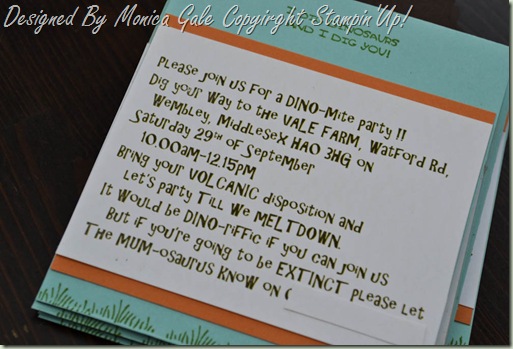 Designed By Monica Gale Copyirght Stampin'Up!
DINOSAURS
AND I DIG YOU!
Please join us for a DINO-Mite party !!
Dig your way to the VALE FARM, Watford Rd,
Wembley, Middlesex HA0 3HG on
Saturday 29th of September
10.00am-12.15pm
Bring your VOLCANIC disposition and
Let's party Till We MELTDOWN.
It would be DINO-riffic if you can join us
But if you're going to be EXTINCT please let
The MUM-osaurus know on (